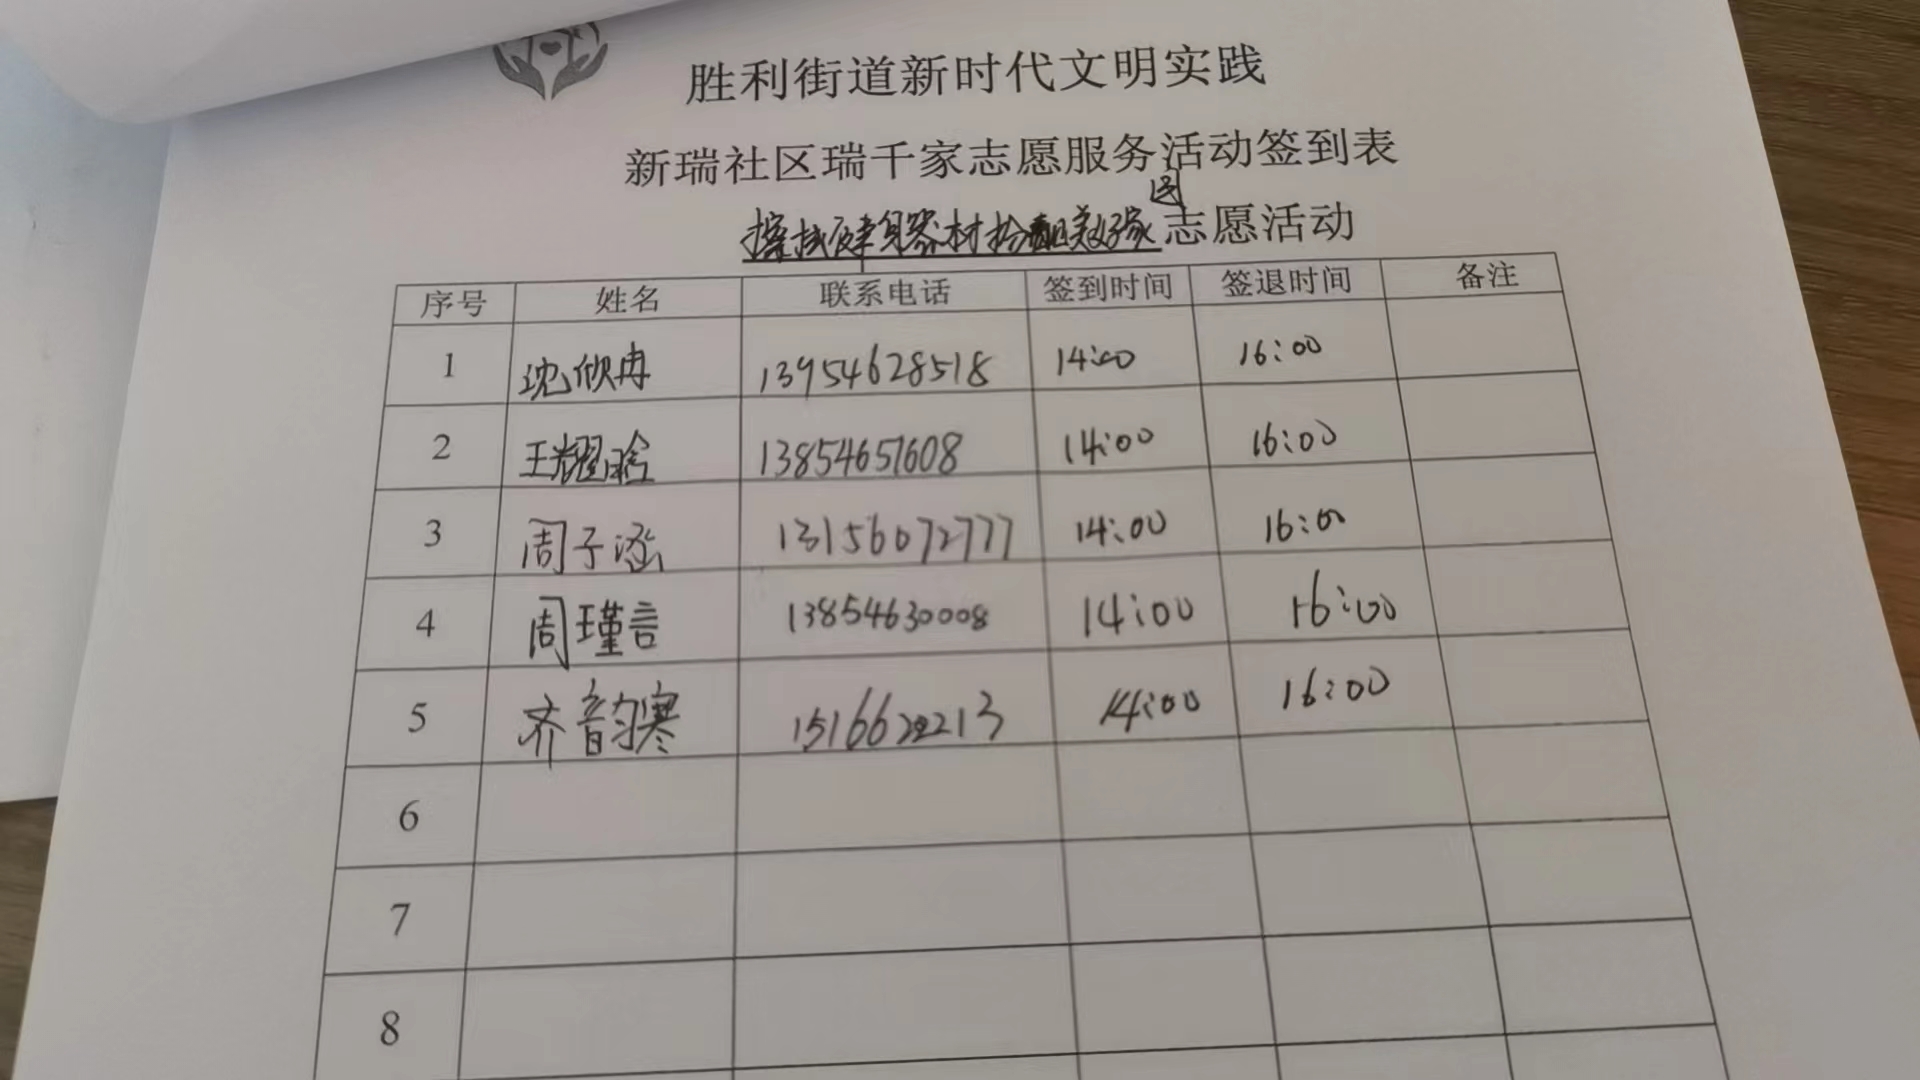 胜利街道新时代文明实践
新瑞社区瑞千家志愿服务活动签到表
擦拭健身器材 美好家园志愿活动
序号 姓名 联系电话 签到时间 签退时间 备注
1 沈欣冉 13954628518 14:00 16:00
2 王耀晗 13854651608 14:00 16:00
3 周子涵 13156072777 14:00 16:00
4 周瑾言 13854630008 14:00 16:00
5 齐韵寒 14:00 16:00
6
7
8